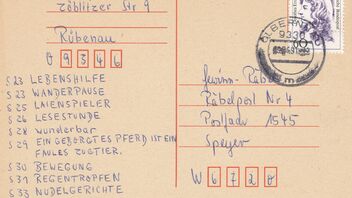 Zöblitzer Str 9
Rübenau
O 9346
S 23 LEBENSHILFE
S 23 WANDERPAUSE
S 25 LAIENSPIELER
S 26 LESESTUNDE
S 28 wunderbar
S 29 EIN GEBORGTES PFERD IST EIN
FAULES ZUGTIER.
S 30 BEWEGUNG
S 31 REGENTROPFEN
S 33 NUDELGERICHTE
OLBERNHAU
9330
60
Rätselpost Nr 4
Postfach 1545
Speyer
W 6720